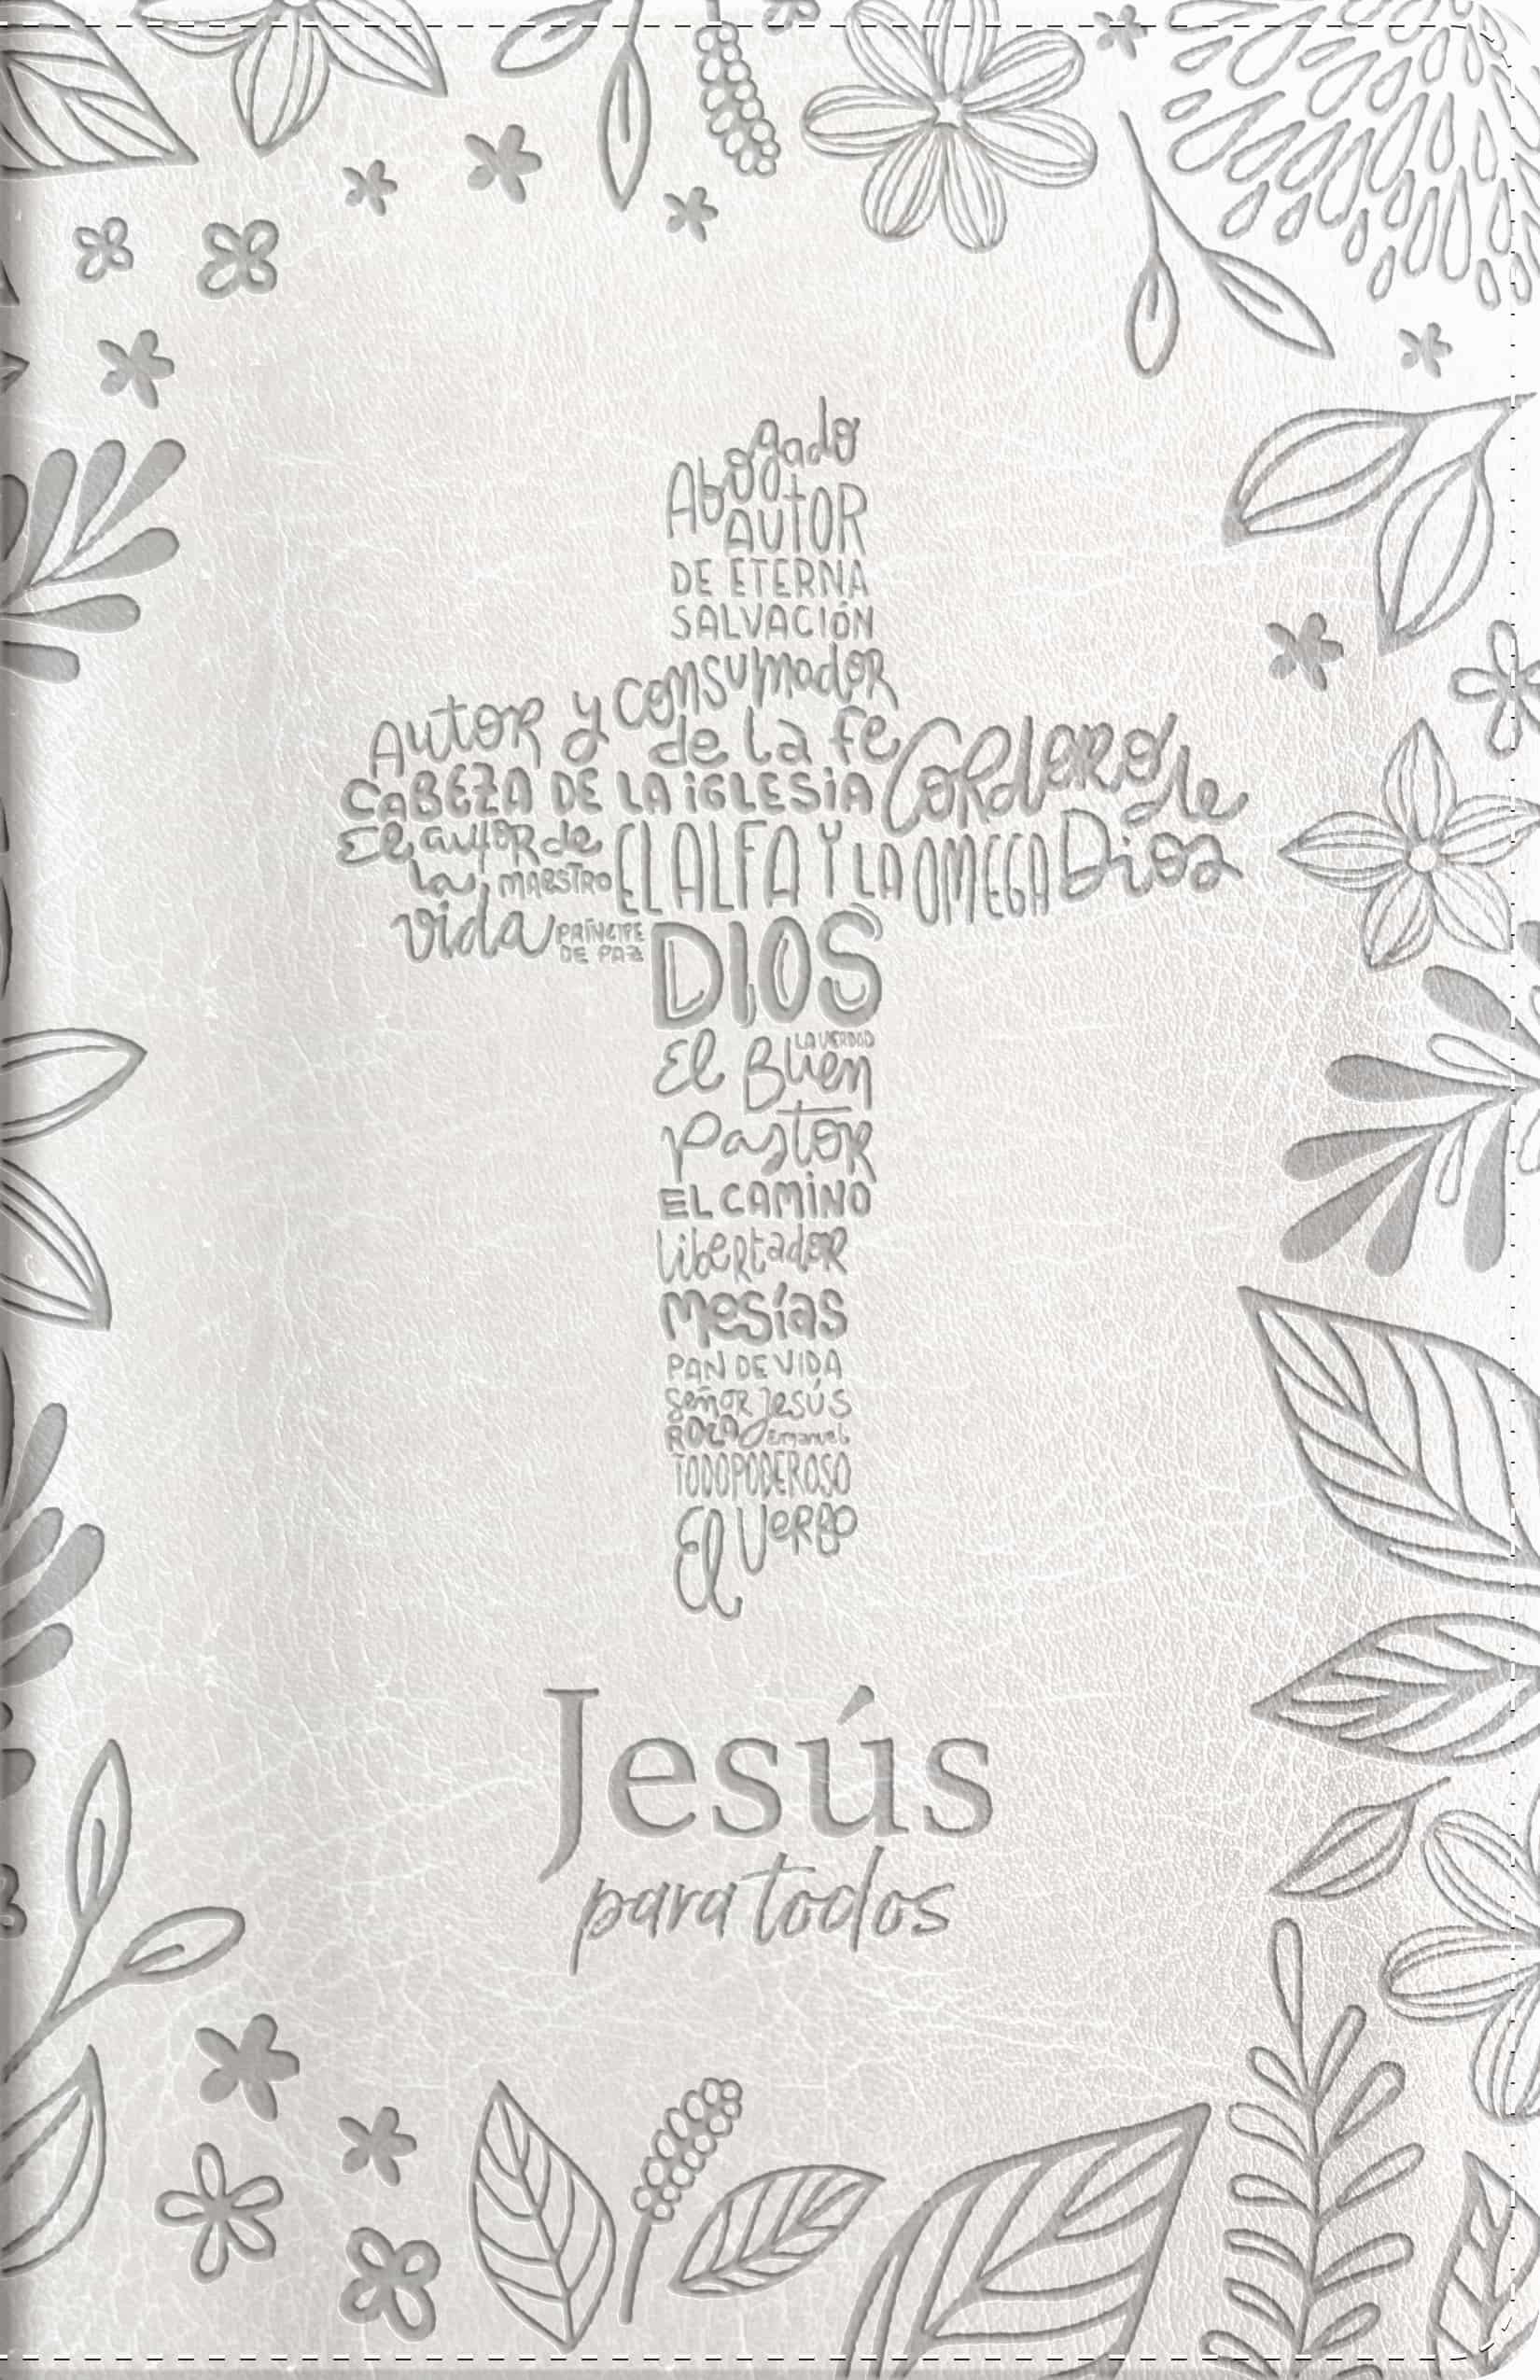 Abogado
AUTOR
DE ETERNA
SALVACIÓN
Autor y consumador
de la fe
CABEZA DE LA IGLESIA
Cordero de
Dios
El autor de
la
vida
MAESTRO
EL ALFA Y LA OMEGA
PRÍNCIPE
DE PAZ
DIOS
LA VERDAD
El Buen
Pastor
EL CAMINO
libertador
mesías
PAN DE VIDA
Señor Jesús
ROCA Emanuel
TODOPODEROSO
El Verbo
Jesús
para todos